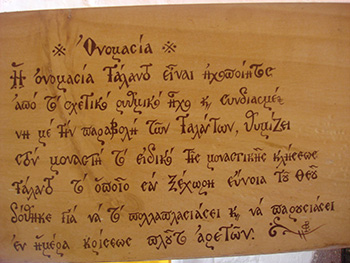 ※ Ὀνομασία ※
Ἡ ὀνομασία Τάλαντο εἶναι ἠχοποίητος
ἀπό τό σχετικό ρυθμικό ἦχο κ συνδιασμέ-
νη μέ τήν παραβολή τῶν Ταλάντων, θυμίζει
στόν μοναστή τό εἰδικό τῆς μοναστικῆς κλήσεως
τάλαντο τό ὁποῖο σάν ξέχωρη εὔνοια τοῦ Θεοῦ
δόθηκε γιά νά τό πολλαπλασιάσει κ νά παρουσιάσει
ἐν ἡμέρα κρίσεως πλοῦτο ἀρετῶν.